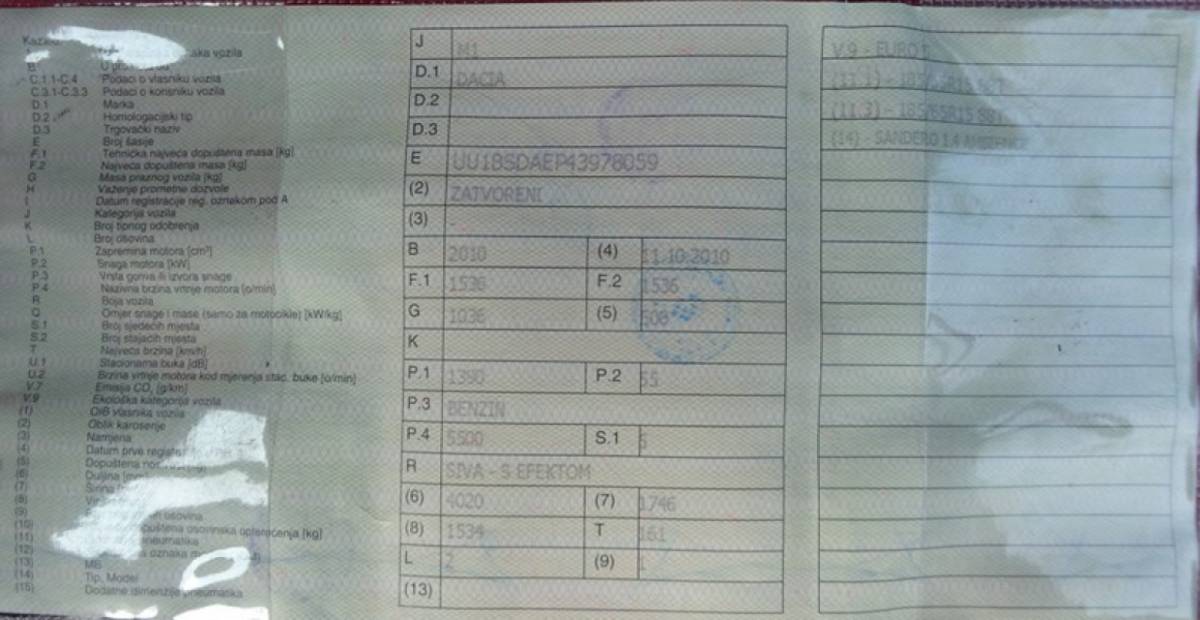 aka vozila
B
C.1.1-C.4 Podaci o vlasniku vozila
C.3.1-C.3.3 Podaci o korisniku vozila
D.1 Marka
D.2 Homologacijski tip
D.3 Trgovački naziv
E Broj šasije
F.1 Tehnička najveća dopuštena masa [kg]
F.2 Najveća dopuštena masa [kg]
G Masa praznog vozila [kg]
H Važenje prometne dozvole
I Datum registracije reg. oznakom pod A
J Kategorija vozila
K Broj tipnog odobrenja
L Broj osovina
P.1 Zapremina motora [cm³]
P.2 Snaga motora [kW]
P.3 Vrsta goriva ili izvora snage
P.4 Nazivna brzina vrtnje motora [o/min]
R Boja vozila
Q Omjer snage i mase (samo za motocikle) [kW/kg]
S.1 Broj sjedećih mjesta
S.2 Broj stajaćih mjesta
T Najveća brzina [km/h]
U.1 Stacionarna buka [dB]
U.2 Brzina vrtnje motora kod mjerenja stac. buke [o/min]
V.7 Emisija CO₂ [g/km]
V.9 Ekološka kategorija vozila
(1) OIB vlasnika vozila
(2) Oblik karoserije
(3) Namjena
(4) Datum prve
(5) Dopuštena
(6) Duljina
(7) Širina
(8)
(9) osovina
(10) osovinska opterećenja [kg]
(11) pneumatika
(12) oznaka
(13) MB
(14) Tip, Model
(15) Dodatne dimenzije pneumatika
J M1
D.1 DACIA
D.2
D.3
E UU1BSDAEP43978059
(2) ZATVORENI
(3) -
B 2010 (4) 11.10.2010
F.1 1536 F.2 1536
G 1036 (5) 500
K
P.1 1390 P.2 55
P.3 BENZIN
P.4 5500 S.1 5
R SIVA - S EFEKTOM
(6) 4020 (7) 1746
(8) 1534 T 161
L 2 (9) 1
(13)
V.9 - EURO
(11.1) - 185/65R15 88T
(11.3) - 185/65R15 88T
(14) - SANDERO 1.4 AMBIENCE